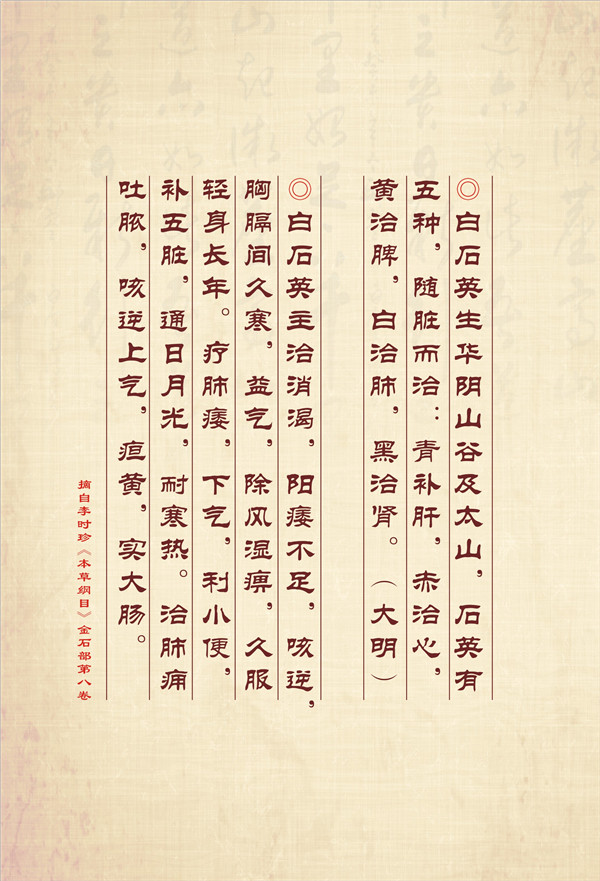 ◎白石英生华阴山谷及太山，石英有
五种，随脏而治：青补肝，赤治心，
黄治脾，白治肺，黑治肾。（大明）
◎白石英主治消渴，阳痿不足，咳逆，
胸膈间久寒，益气，除风湿痹，久服
轻身长年。疗肺痿，下气，利小便，
补五脏，通日月光，耐寒热。治肺痈
吐脓，咳逆上气，疸黄，实大肠。
摘自李时珍《本草纲目》金石部第八卷